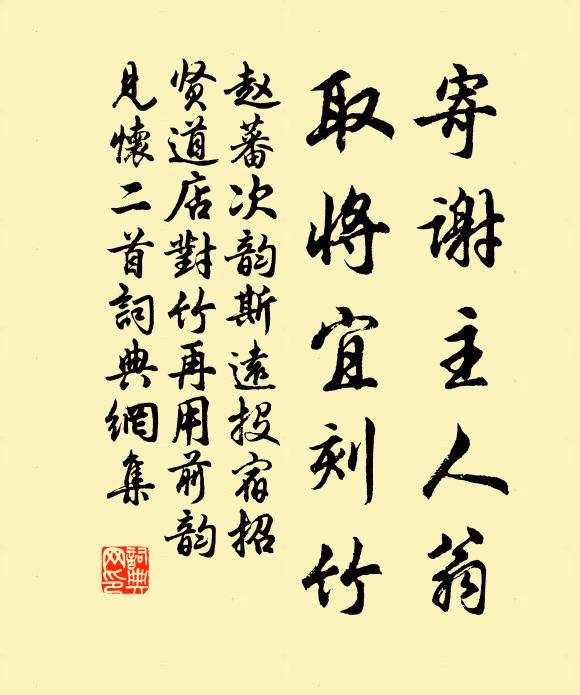 寄谢主人翁
取将宜刻竹
赵蕃次韵斯远投宿招
贤道店對竹再用前韵
見懷二首詞典網集
詞典网印